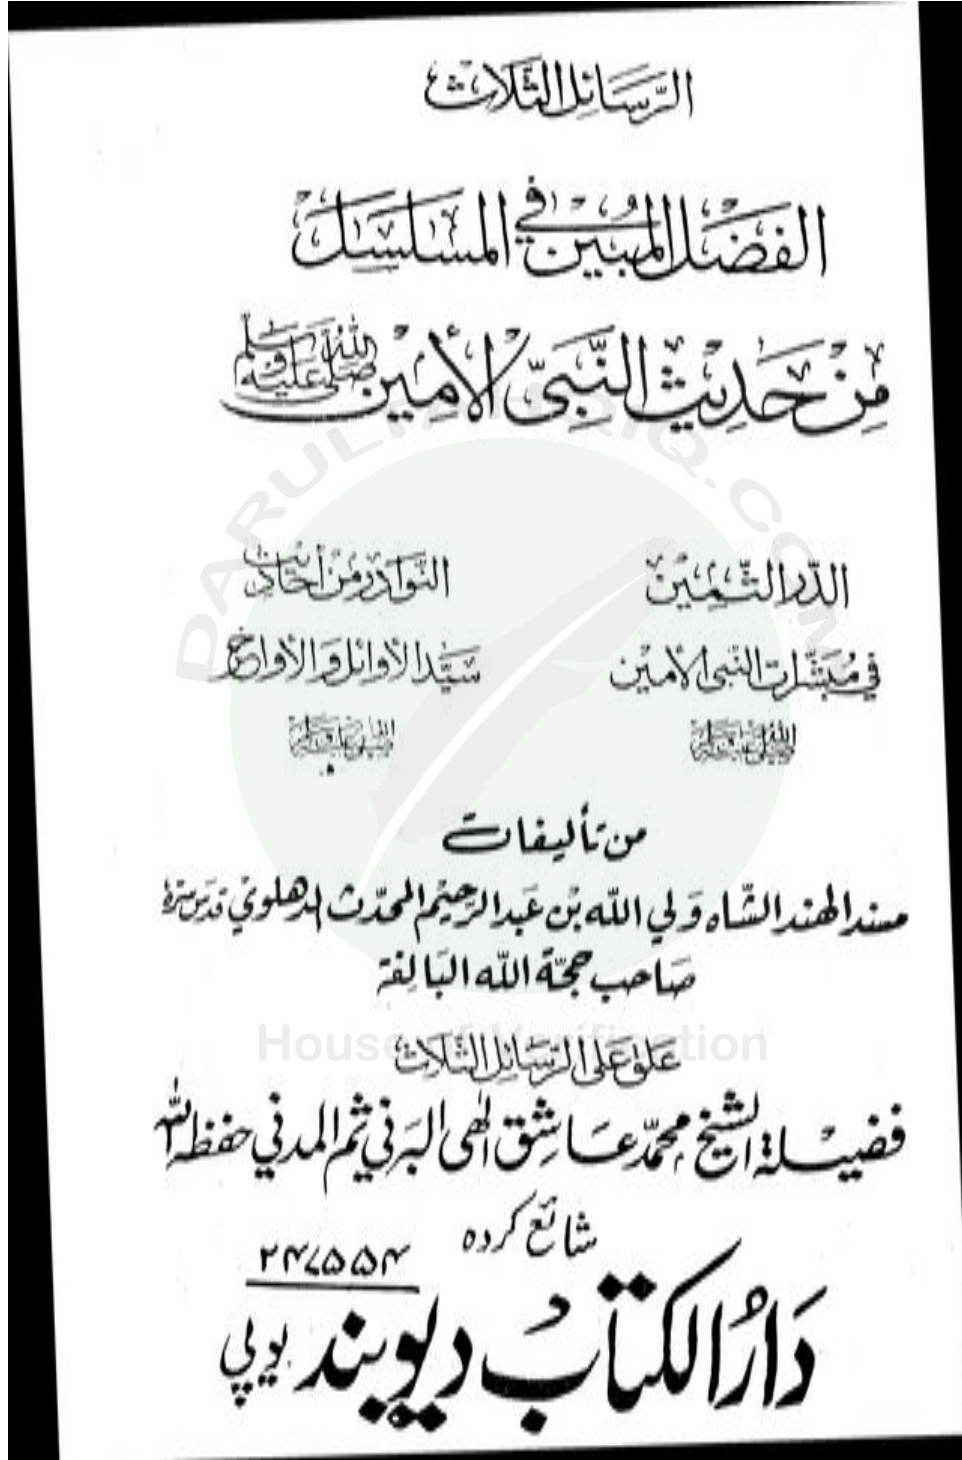 الرَّسَائِل الثَّلَاث
الفَضْلُ المُبِين في المسَلسَل
مِنْ حَدِيثِ النَّبِيّ الأَمِين صَلَّى اللهُ عَلَيْهِ وَسَلَّم
الدّر الثَّمِيْن
في مُبَشَّرات النَّبي الأمين
صلى الله عليه وسلم
النَّوادر مِنْ أحَاديث
سَيّد الأوائل وَالأواخر
صلى الله عليه وسلم
من تأليفات
مسند الهند الشّاه وَلي اللّه بن عَبد الرّحيم المحدّث الدهلوي قدس سره
صَاحب حجّة اللّه البَالغة
علق عَلى الرّسَائل الثّلاث
فضيلة الشيخ محمّد عاشق إلٰهي البرني ثم المدني حفظه الله
شائع کردہ
۲۴۷۵۵۴
دَارُ الکتابْ دیوبند یوپی
DARULTAHQIQ.COM
House of Verification